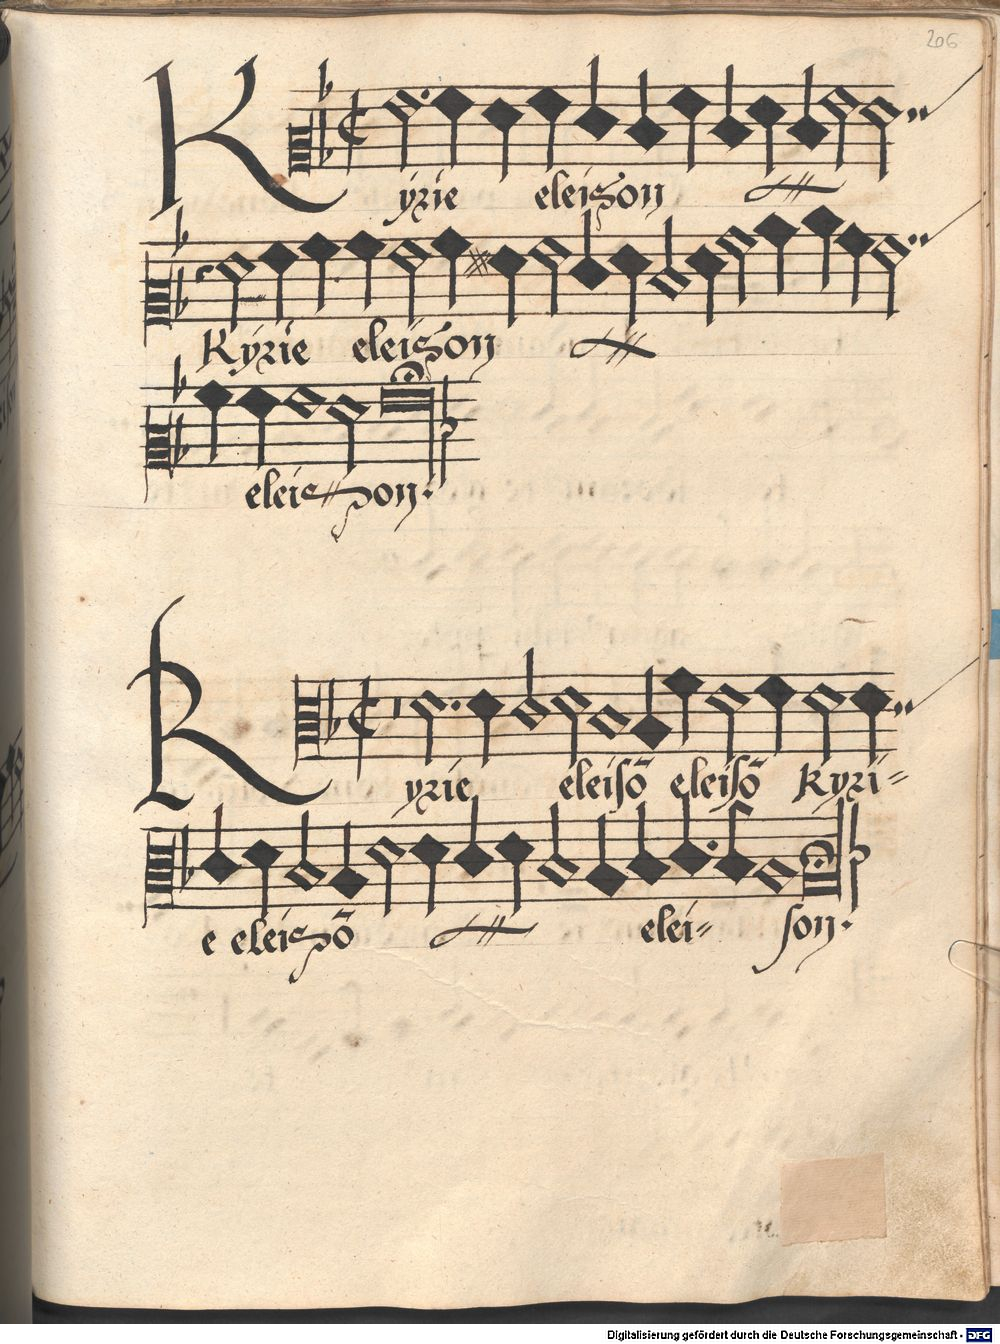 206
Kyrie eleison
Kyrie eleison
eleison.
Kyrie eleisō eleisō Kyri=
e eleisō elei= son.
Digitalisierung gefördert durch die Deutsche Forschungsgemeinschaft - DFG